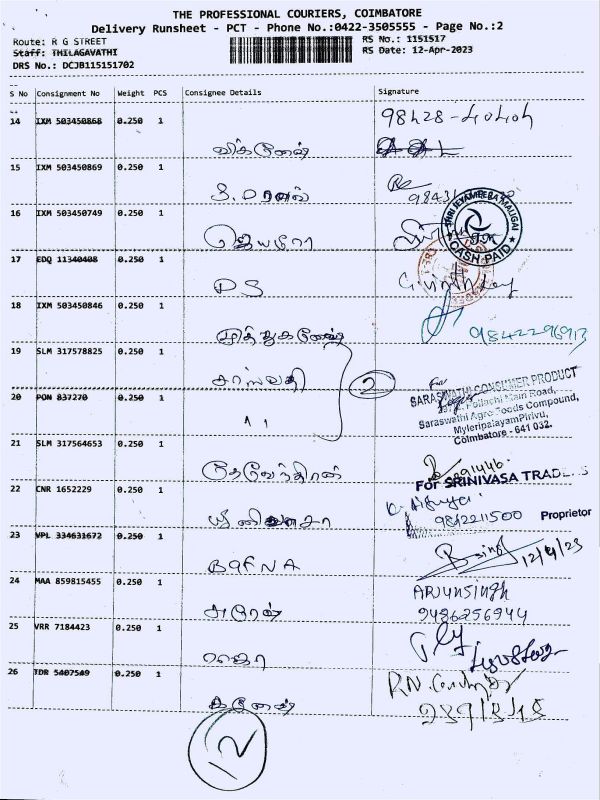 THE PROFESSIONAL COURIERS, COIMBATORE
Delivery Runsheet - PCT - Phone No.:0422-3505555 - Page No.:2
Route: R G STREET
RS No.: 1151517
Staff: THILAGAVATHI
RS Date: 12-Apr-2023
DRS No.: DCJB115151702
S No Consignment No Weight PCS Consignee Details Signature
14 IXM 503450868 0.250 1
98428-40404
விக்னேஷ்
15 IXM 503450869 0.250 1
16 IXM 503450749 0.250 1
SHRI JEYAMREBA MALIGAI
CASH PAID
ஜெயமீரா
17 EDQ 11340408 0.250 1
DS
18 IXM 503450846 0.250 1
9842296913
முத்துகணேஷ்
19 SLM 317578825 0.250 1
சரஸ்வதி
2
For
SARASWATHI CONSUMER PRODUCT
Pollachi Main Road,
Saraswathi Agro Foods Compound,
MyleripalayamPirivu,
Coimbatore - 641 032.
20 PON 837270 0.250 1
21 SLM 317564653 0.250 1
தேவேந்திரன்
For SRINIVASA TRADERS
22 CNR 1652229 0.250 1
9842211500 Proprietor
ஸ்ரீனிவாசா
23 VPL 334631672 0.250 1
12/4/23
BAFNA
24 MAA 859815455 0.250 1
ARJUNSINGH
9486256944
25 VRR 7184423 0.250 1
ராஜா
26 TDR 5407549 0.250 1
கணேஷ்
12